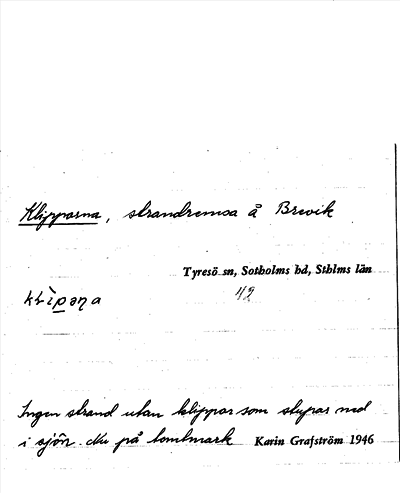 Klipporna, strandremsa å Brevik
Tyresö sn, Sotholms hd, Sthlms län
42
Ingen strand utan klippor som stupar ned
i sjön. Nu på tomtmark Karin Grafström 1946